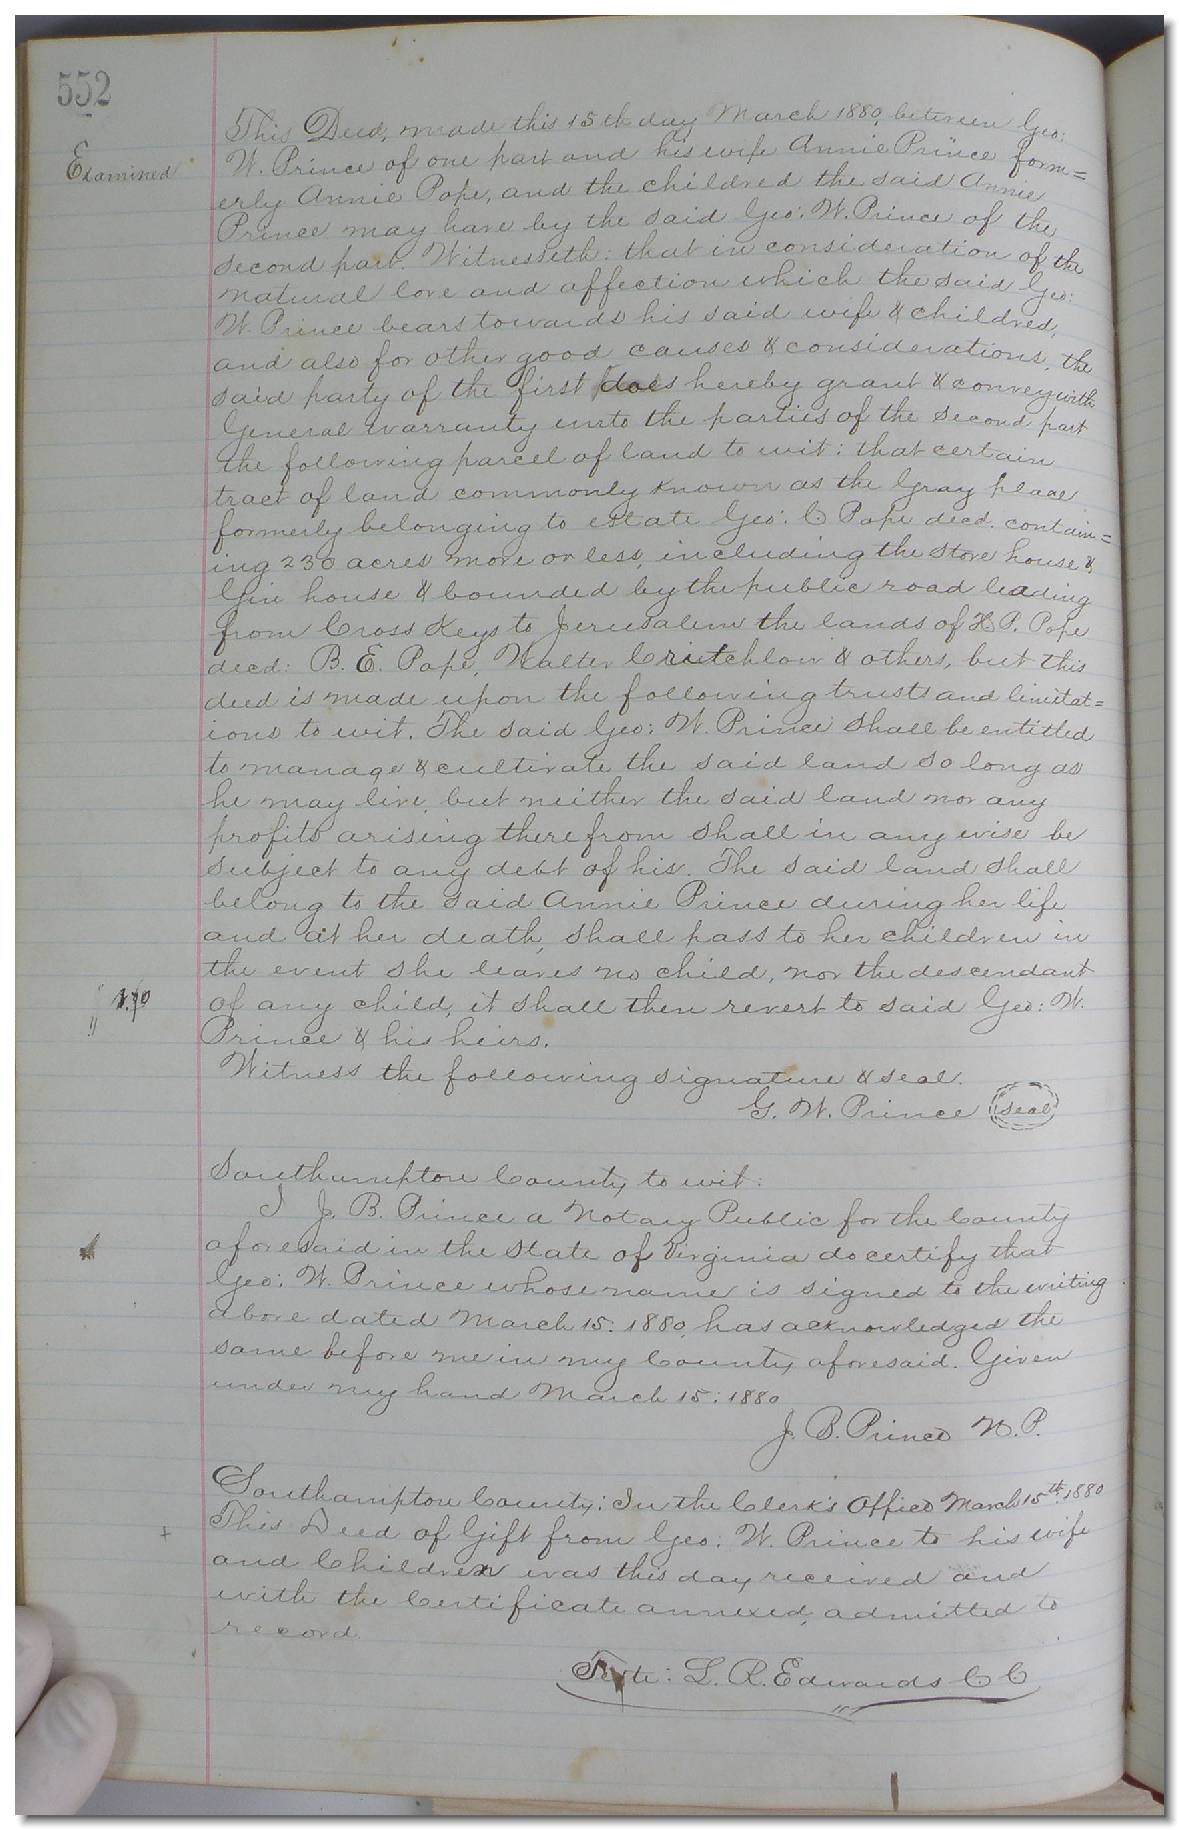 552
Examined
This Deed, made this 15th day March 1880, between Geo:
W. Prince of one part and his wife Annie Prince form=
erly Annie Pope, and the children the said Annie
Prince may have by the said Geo: W. Prince of the
second part. Witnesseth: that in consideration of the
natural love and affection which the said Geo:
W. Prince bears towards his said wife & children,
and also for other good causes & considerations, the
said party of the first does hereby grant & convey with
General warranty unto the parties of the second part
the following parcel of land to wit: that certain
tract of land commonly known as the Gray place
formerly belonging to estate Geo: C Pope decd. contain=
ing 230 acres more or less, including the store house &
Gin house & bounded by the public road leading
from Cross Keys to Jerusalem the lands of H. P. Pope
decd: B. E. Pope, Walter Crutchlow & others, but this
deed is made upon the following trusts and limitat=
ions to wit. The said Geo: W. Prince shall be entitled
to manage & cultivate the said land so long as
he may live, but neither the said land nor any
profits arising there from shall in any wise be
subject to any debt of his. The said land shall
belong to the said Annie Prince during her life
and at her death, shall pass to her children in
the event she leaves no child, nor the descendant
of any child, it shall then revert to said Geo: W.
Prince & his heirs.
Witness the following signature & seal.
G. W. Prince seal
Southampton County, to wit:
I J. B. Prince a Notary Public for the County
aforesaid in the State of Virginia do certify that
Geo: W. Prince whose name is signed to the writing
above dated March 15. 1880, has acknowledged the
same before me in my County aforesaid. Given
under my hand March 15: 1880
J. B. Prince N. P.
Southampton County: In the Clerk's Office March 15th 1880
This Deed of Gift from Geo: W. Prince to his wife
and Children was this day received and
with the Certificate annexed, admitted to
record.
Teste: L. R. Edwards C C